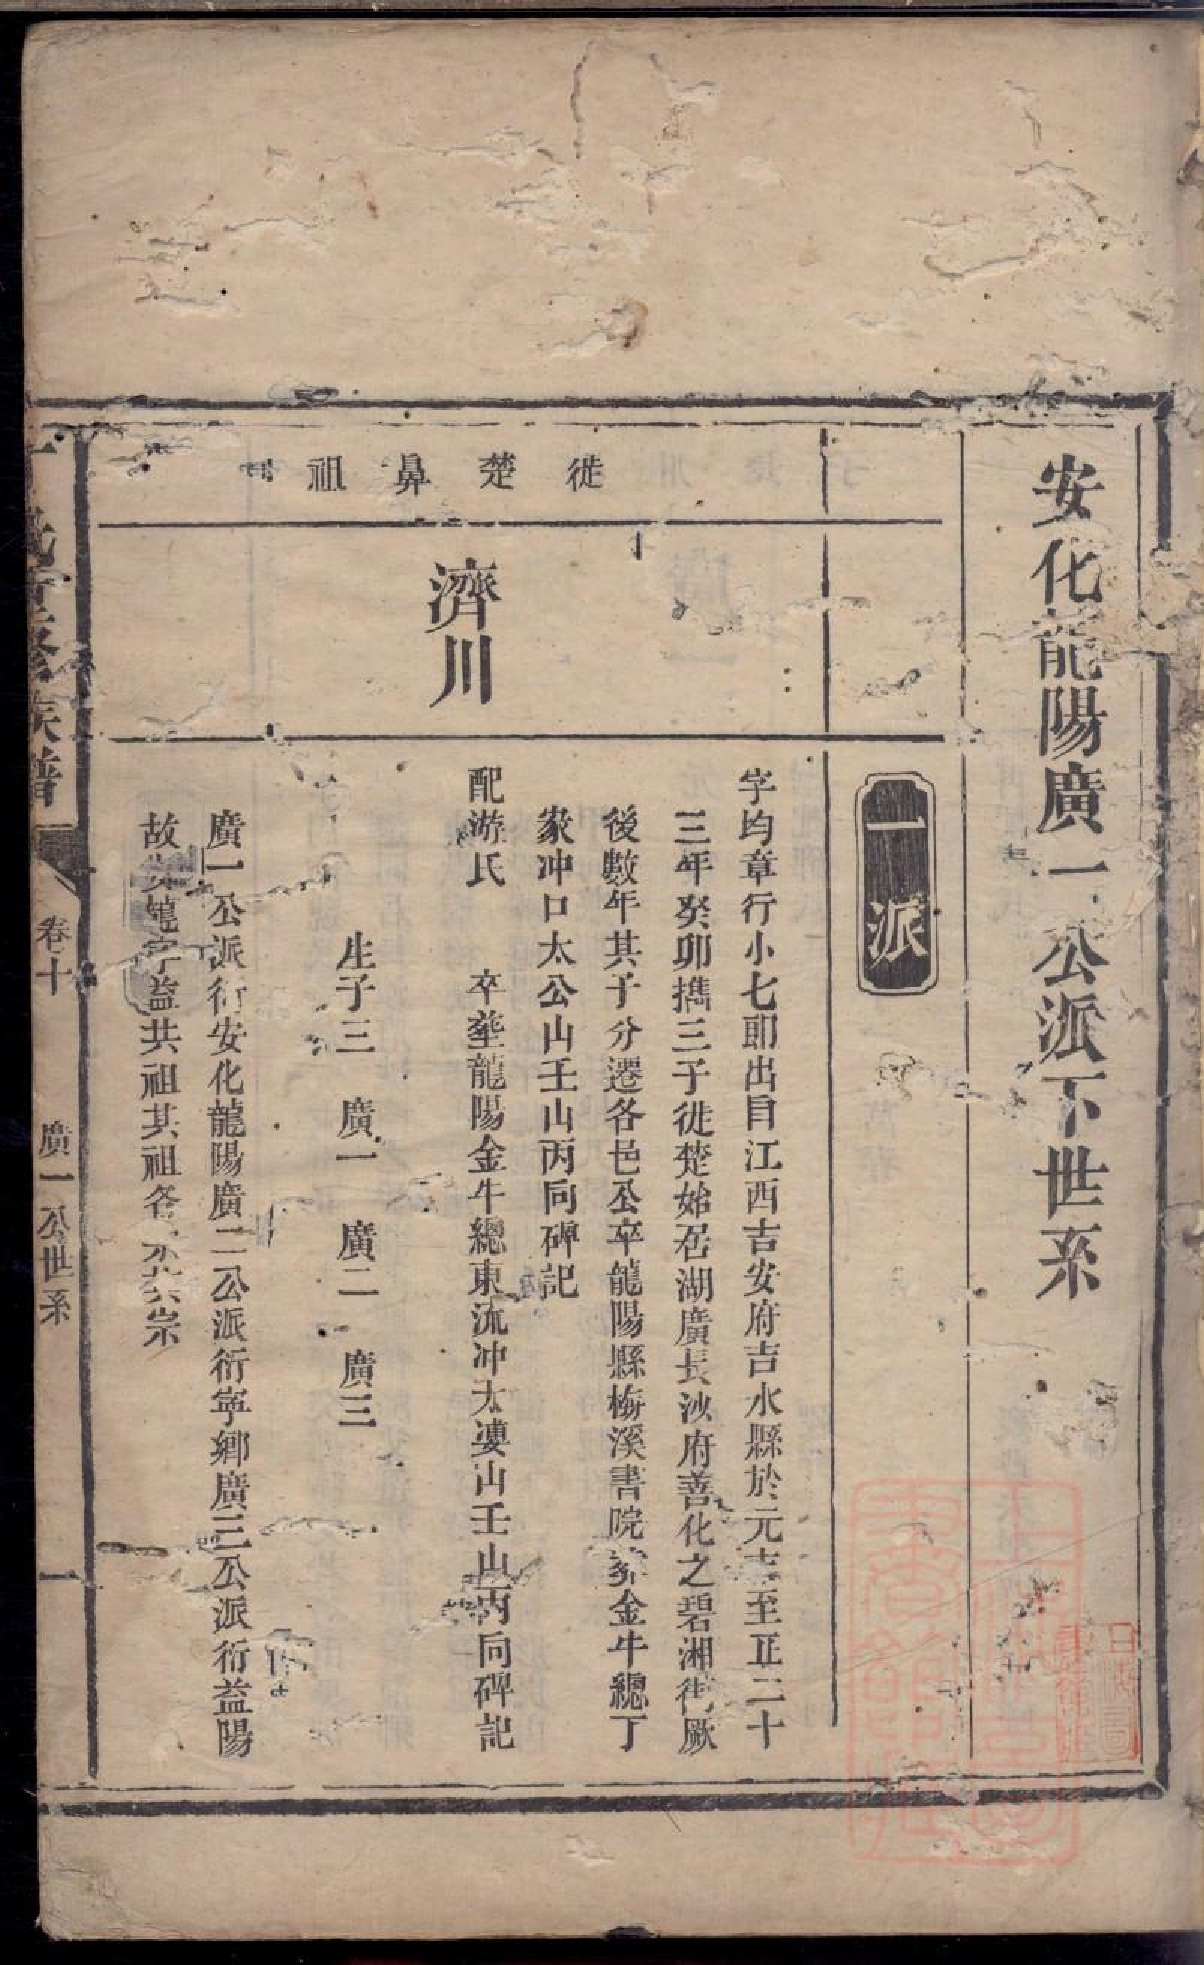 安化龍陽廣一公派下世系
一派
徙楚鼻祖
濟川
字均章行小七郎出自江西吉安府吉水縣於元至正二十
三年癸卯攜三子徙楚始居湖廣長沙府善化之碧湘街厥
後數年其子分遷各邑公卒龍陽縣梅溪書院葬金牛總丁
家冲口太公山壬山丙向碑記
配游氏 卒塟龍陽金牛總東流冲太婆山壬山丙向碑記
生子三 廣一 廣二 廣三
廣一公派衍安化龍陽廣二公派衍寧鄉廣三公派衍益陽
故安龍寧益共祖其祖各宗其宗
修族譜
卷十
廣一公世系
一